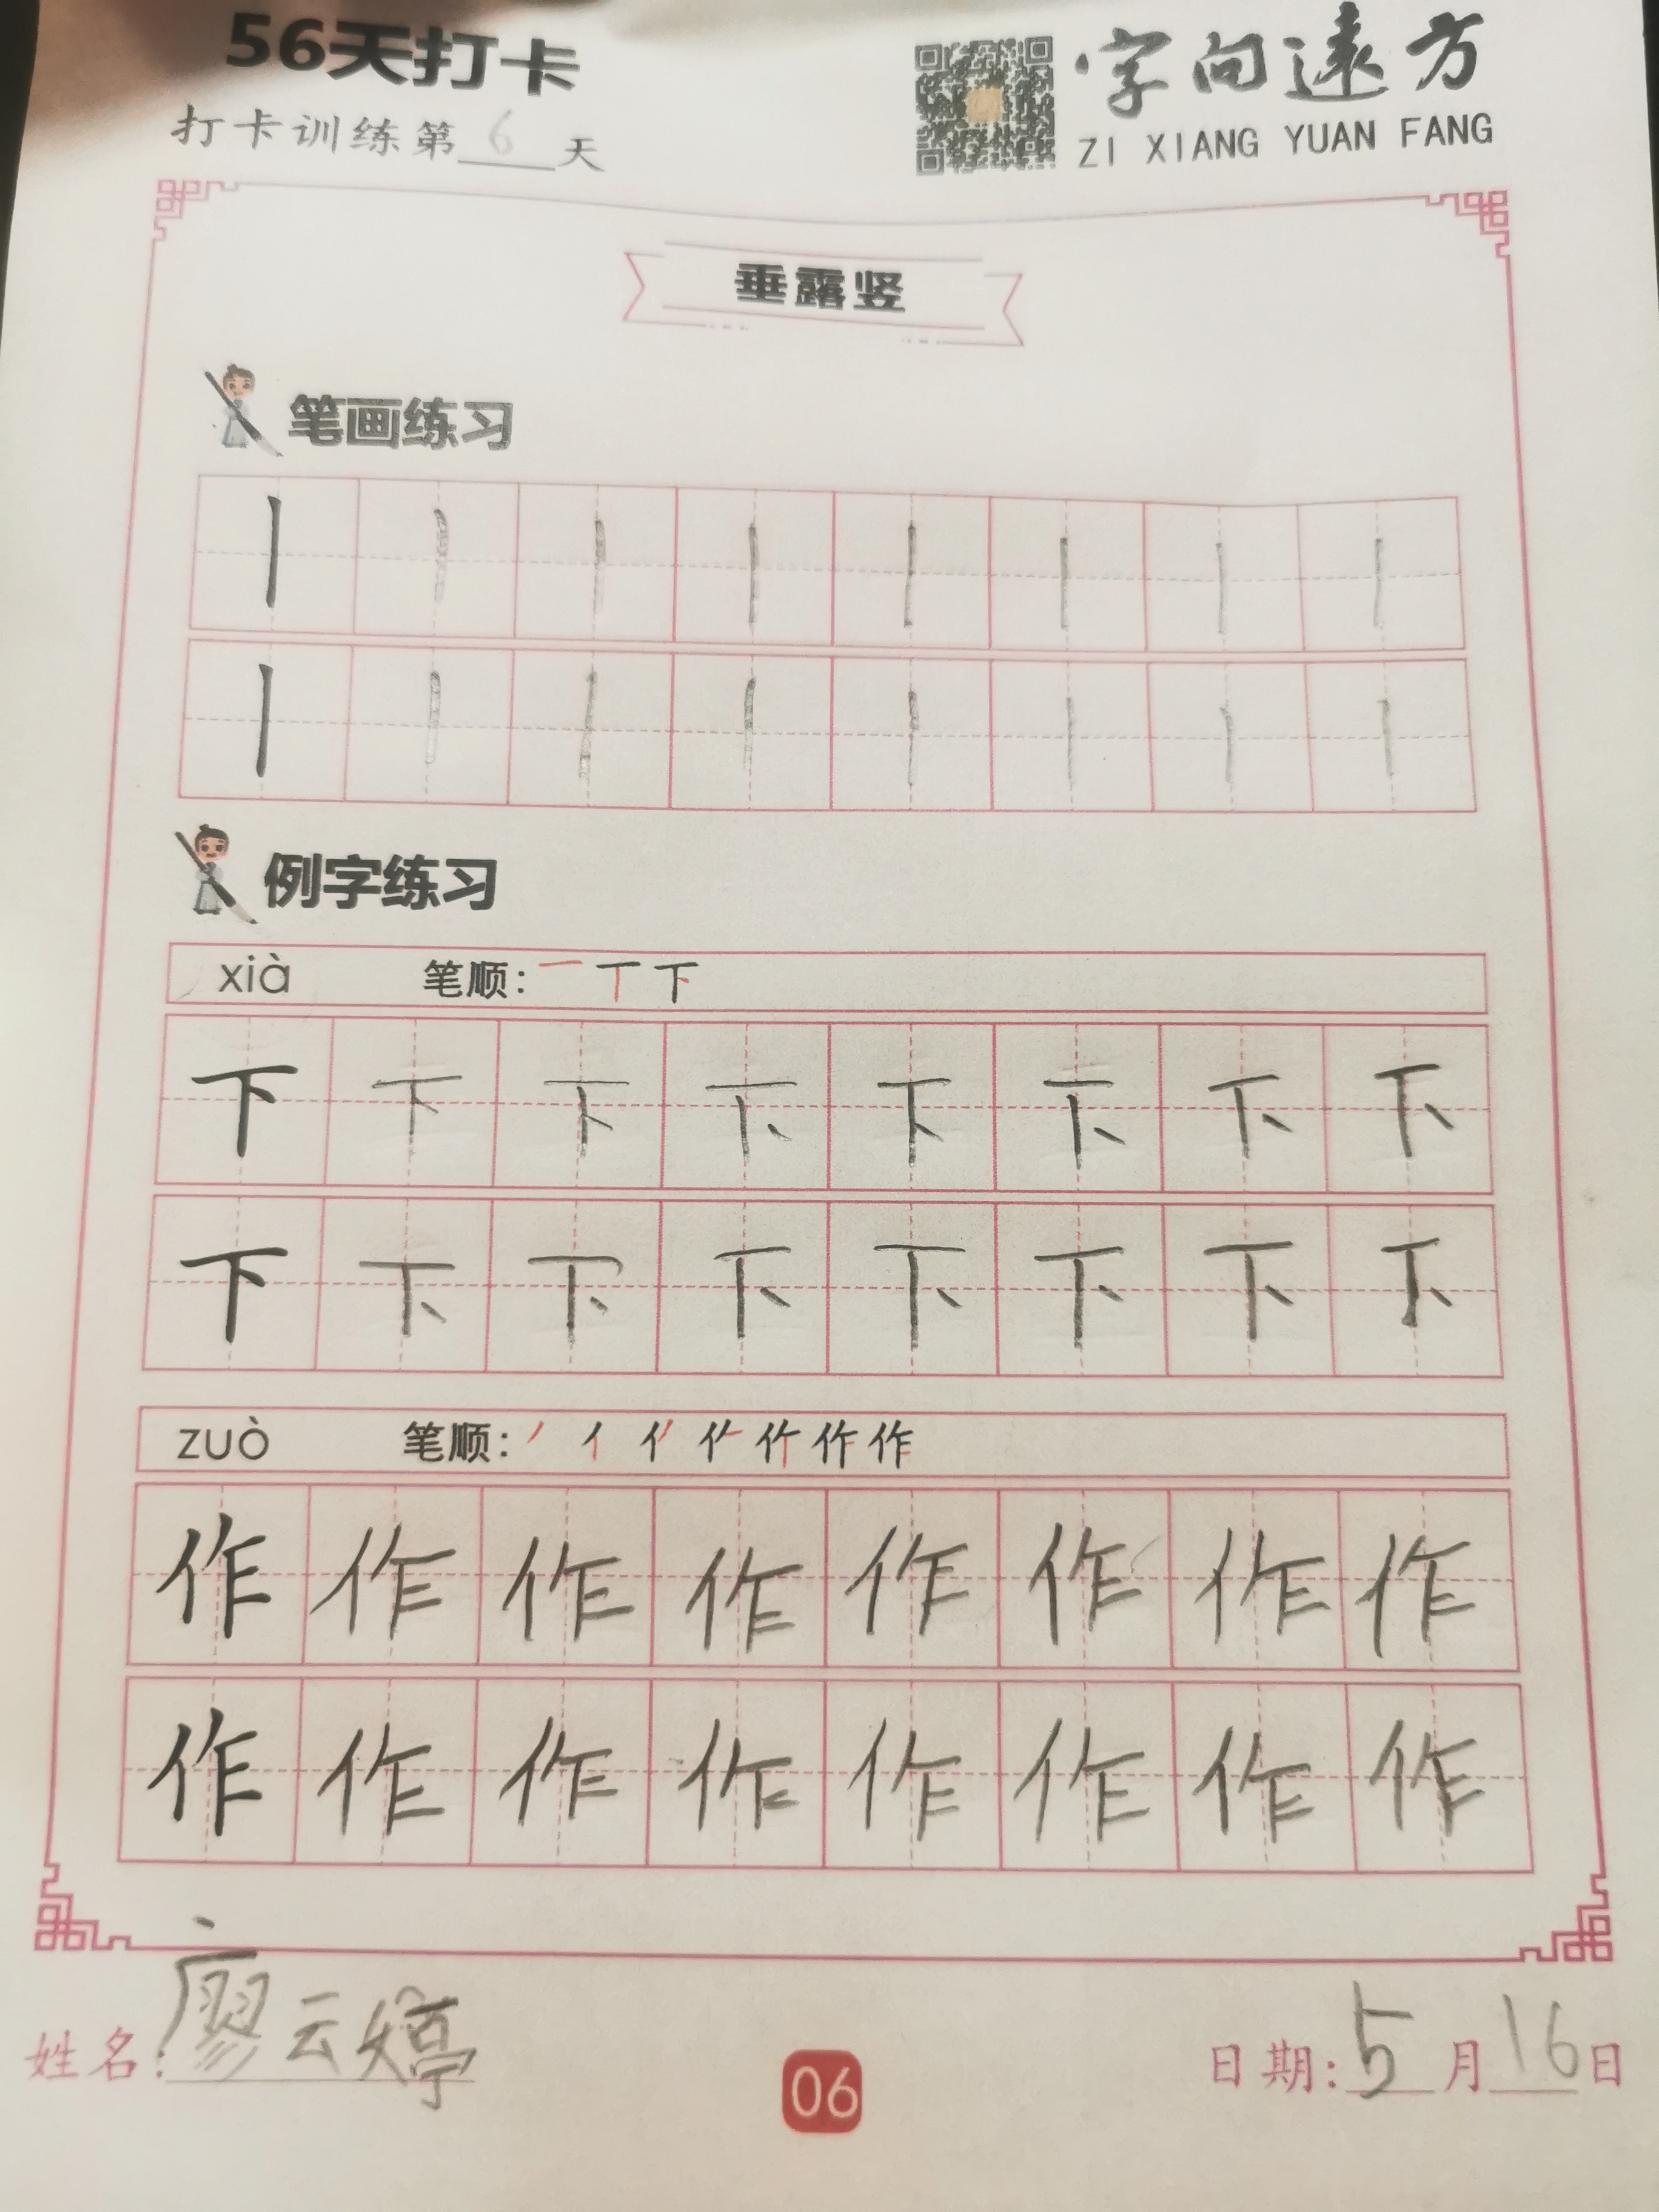 56天打卡
打卡训练第6天
字向遠方
ZI XIANG YUAN FANG
垂露竖
笔画练习
丨 丨 丨 丨 丨 丨 丨 丨
丨 丨 丨 丨 丨 丨 丨 丨
例字练习
xià 笔顺: 一 丅 下
下 下 下 下 下 下 下 下
下 下 下 下 下 下 下 下
zuò 笔顺: 丿 亻 作
作 作 作 作 作 作 作 作
作 作 作 作 作 作 作 作
姓名: 廖云婷
06
日期: 5月16日